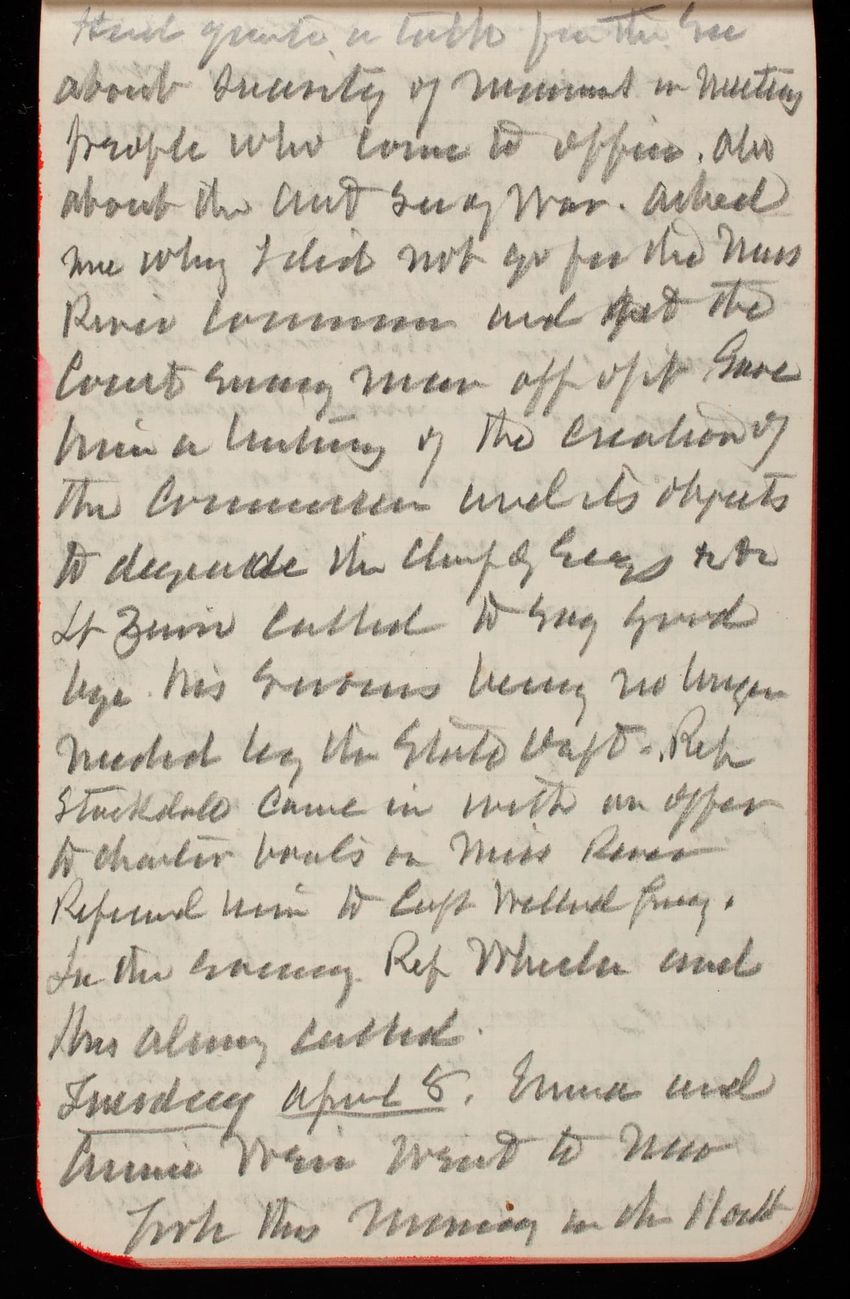 Had quite a talk for the Sec
about scarcity of in meeting
people who come to office. also
about the asst Secy War. asked
me why I did not go for the Miss
River Commission and get the
asst Secy War off of it Gave
him a history of the creation of
the Commission and its objects
to degrade the Chief of Engs &c &c
Lt Zinn called to say good
bye his services being no longer
needed by the State Dept. Rep
Stockdale came in with an offer
to charter boats on Miss River
Referred him to Capt Willard
In the evening Rep Wheeler and
called.
Tuesday April 8. Emma and
Annie went to New
York this morning on the